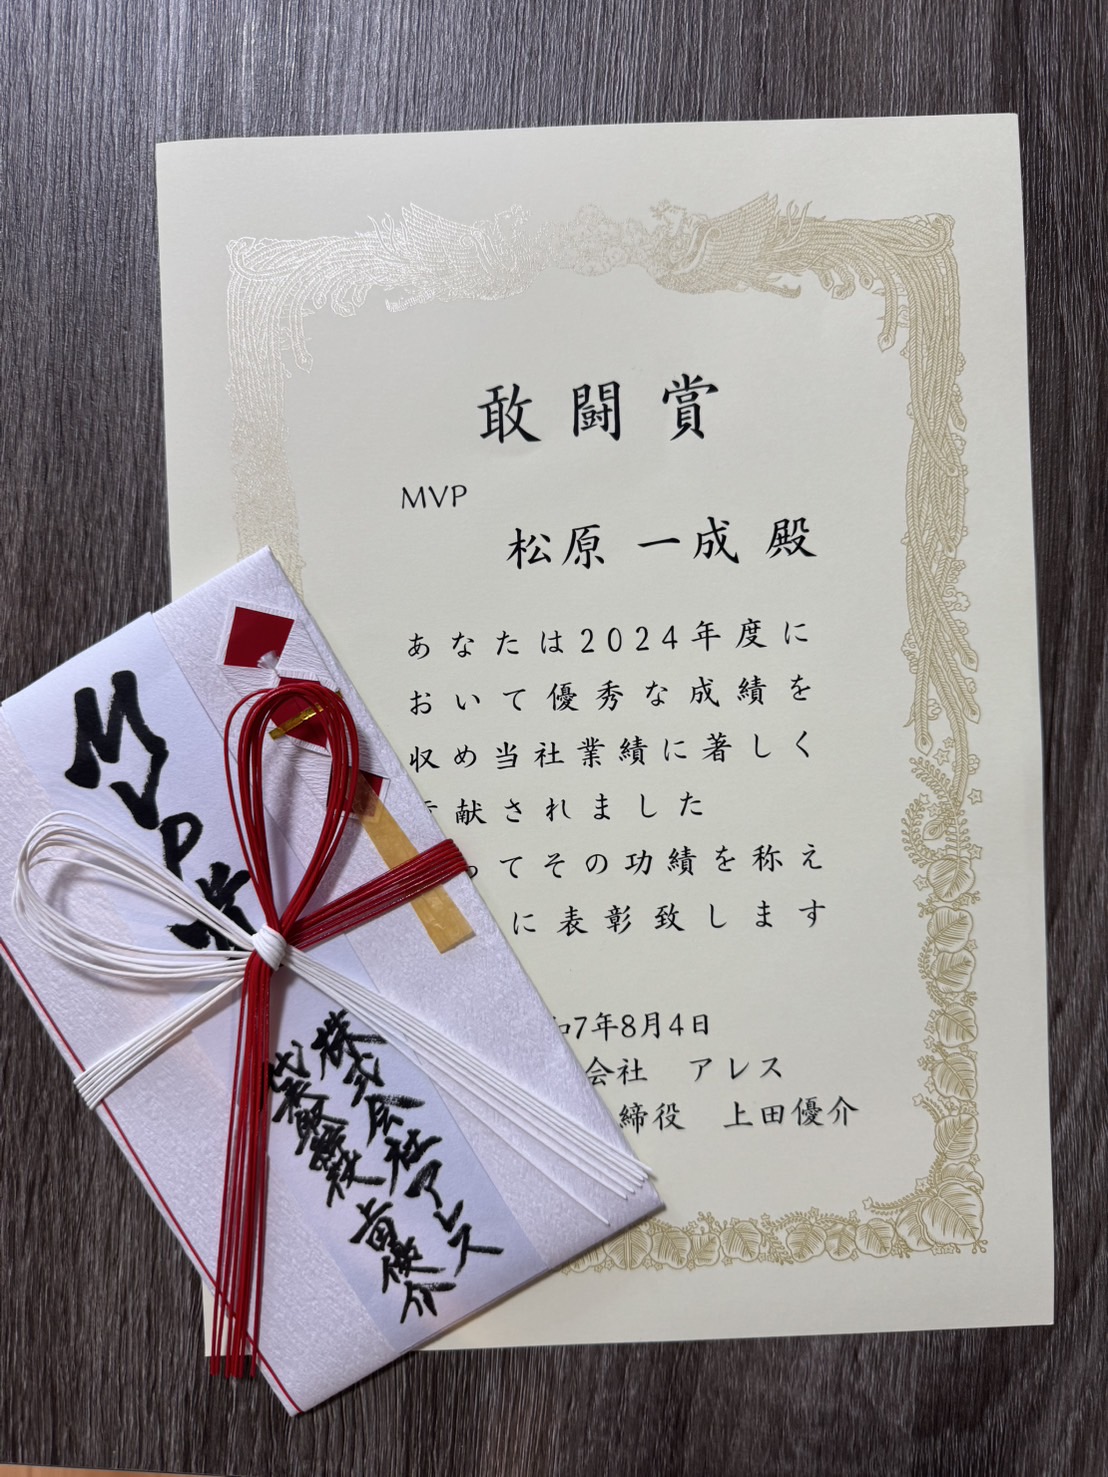 敢闘賞
MVP
松原 一成 殿
あなたは2024年度に
おいて優秀な成績を
収め当社業績に著しく
献されました
ってその功績を称え
に表彰致します
7年8月4日
会社 アレス
締役 上田優介
MVP賞
株式会社アレス
代表取締役 上田優介